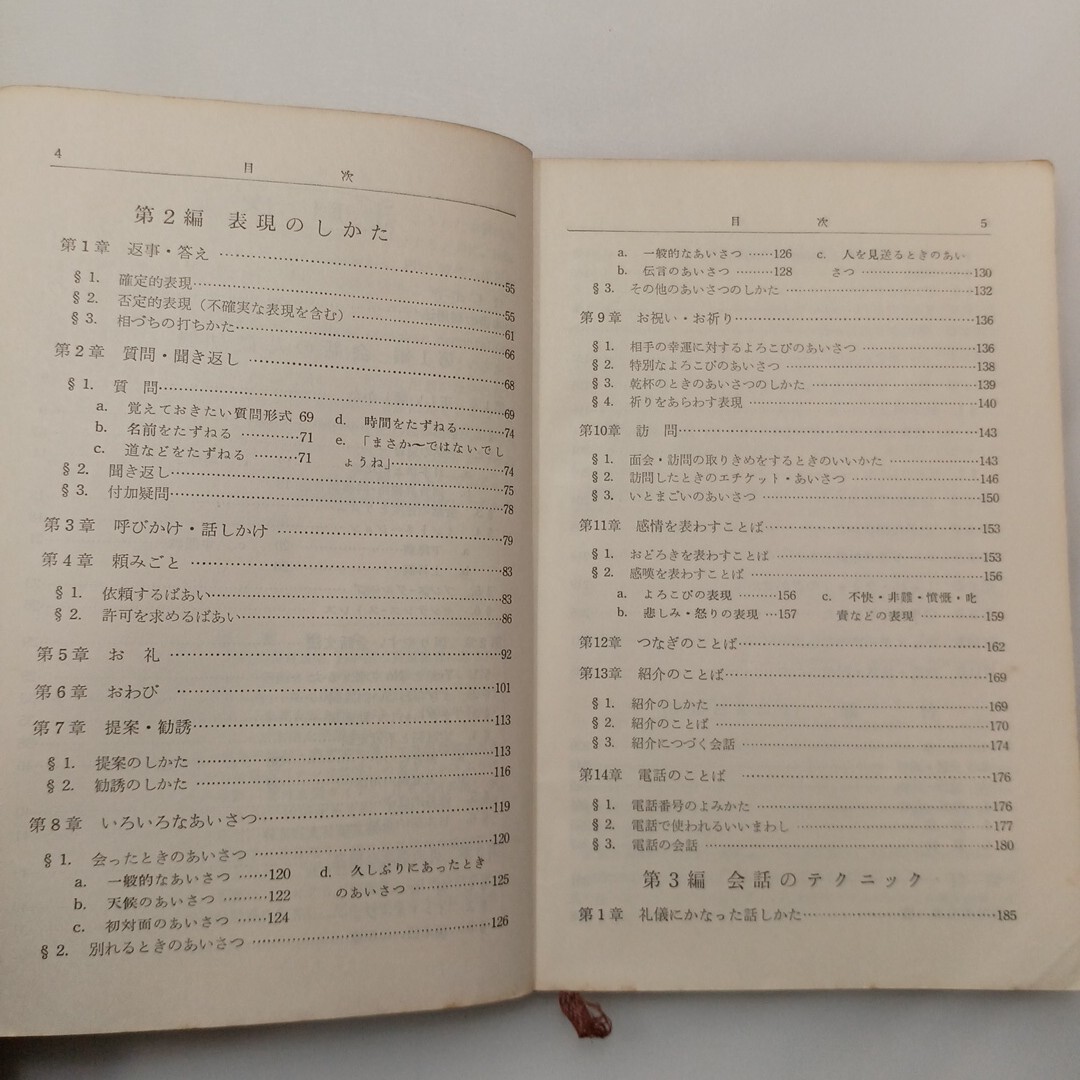 4
目 次
第2編 表現のしかた
第1章 返事・答え……55
§1. 確定的表現……55
§2. 否定的表現（不確実な表現を含む）……61
§3. 相づちの打ちかた……66
第2章 質問・聞き返し……68
§1. 質 問……69
a. 覚えておきたい質問形式 69
b. 名前をたずねる……71
c. 道などをたずねる……71
d. 時間をたずねる……74
e. 「まさか〜ではないでし
ょうね」……74
§2. 聞き返し……75
§3. 付加疑問……78
第3章 呼びかけ・話しかけ……79
第4章 頼みごと……83
§1. 依頼するばあい……83
§2. 許可を求めるばあい……86
第5章 お 礼……92
第6章 おわび……101
第7章 提案・勧誘……113
§1. 提案のしかた……113
§2. 勧誘のしかた……116
第8章 いろいろなあいさつ……119
§1. 会ったときのあいさつ……120
a. 一般的なあいさつ……120
b. 天候のあいさつ……122
c. 初対面のあいさつ……124
d. 久しぶりにあったとき
のあいさつ……125
§2. 別れるときのあいさつ……126
目 次
5
a. 一般的なあいさつ……126
b. 伝言のあいさつ……128
c. 人を見送るときのあい
さつ……130
§3. その他のあいさつのしかた……132
第9章 お祝い・お祈り……136
§1. 相手の幸運に対するよろこびのあいさつ……136
§2. 特別なよろこびのあいさつ……138
§3. 乾杯のときのあいさつのしかた……139
§4. 祈りをあらわす表現……140
第10章 訪 問……143
§1. 面会・訪問の取りきめをするときのいいかた……143
§2. 訪問したときのエチケット・あいさつ……146
§3. いとまごいのあいさつ……150
第11章 感情を表わすことば……153
§1. おどろきを表わすことば……153
§2. 感嘆を表わすことば……156
a. よろこびの表現……156
b. 悲しみ・怒りの表現……157
c. 不快・非難・憤慨・叱
責などの表現……159
第12章 つなぎのことば……162
第13章 紹介のことば……169
§1. 紹介のしかた……169
§2. 紹介のことば……170
§3. 紹介につづく会話……174
第14章 電話のことば……176
§1. 電話番号のよみかた……176
§2. 電話で使われるいいまわし……177
§3. 電話の会話……180
第3編 会話のテクニック
第1章 礼儀にかなった話しかた……185